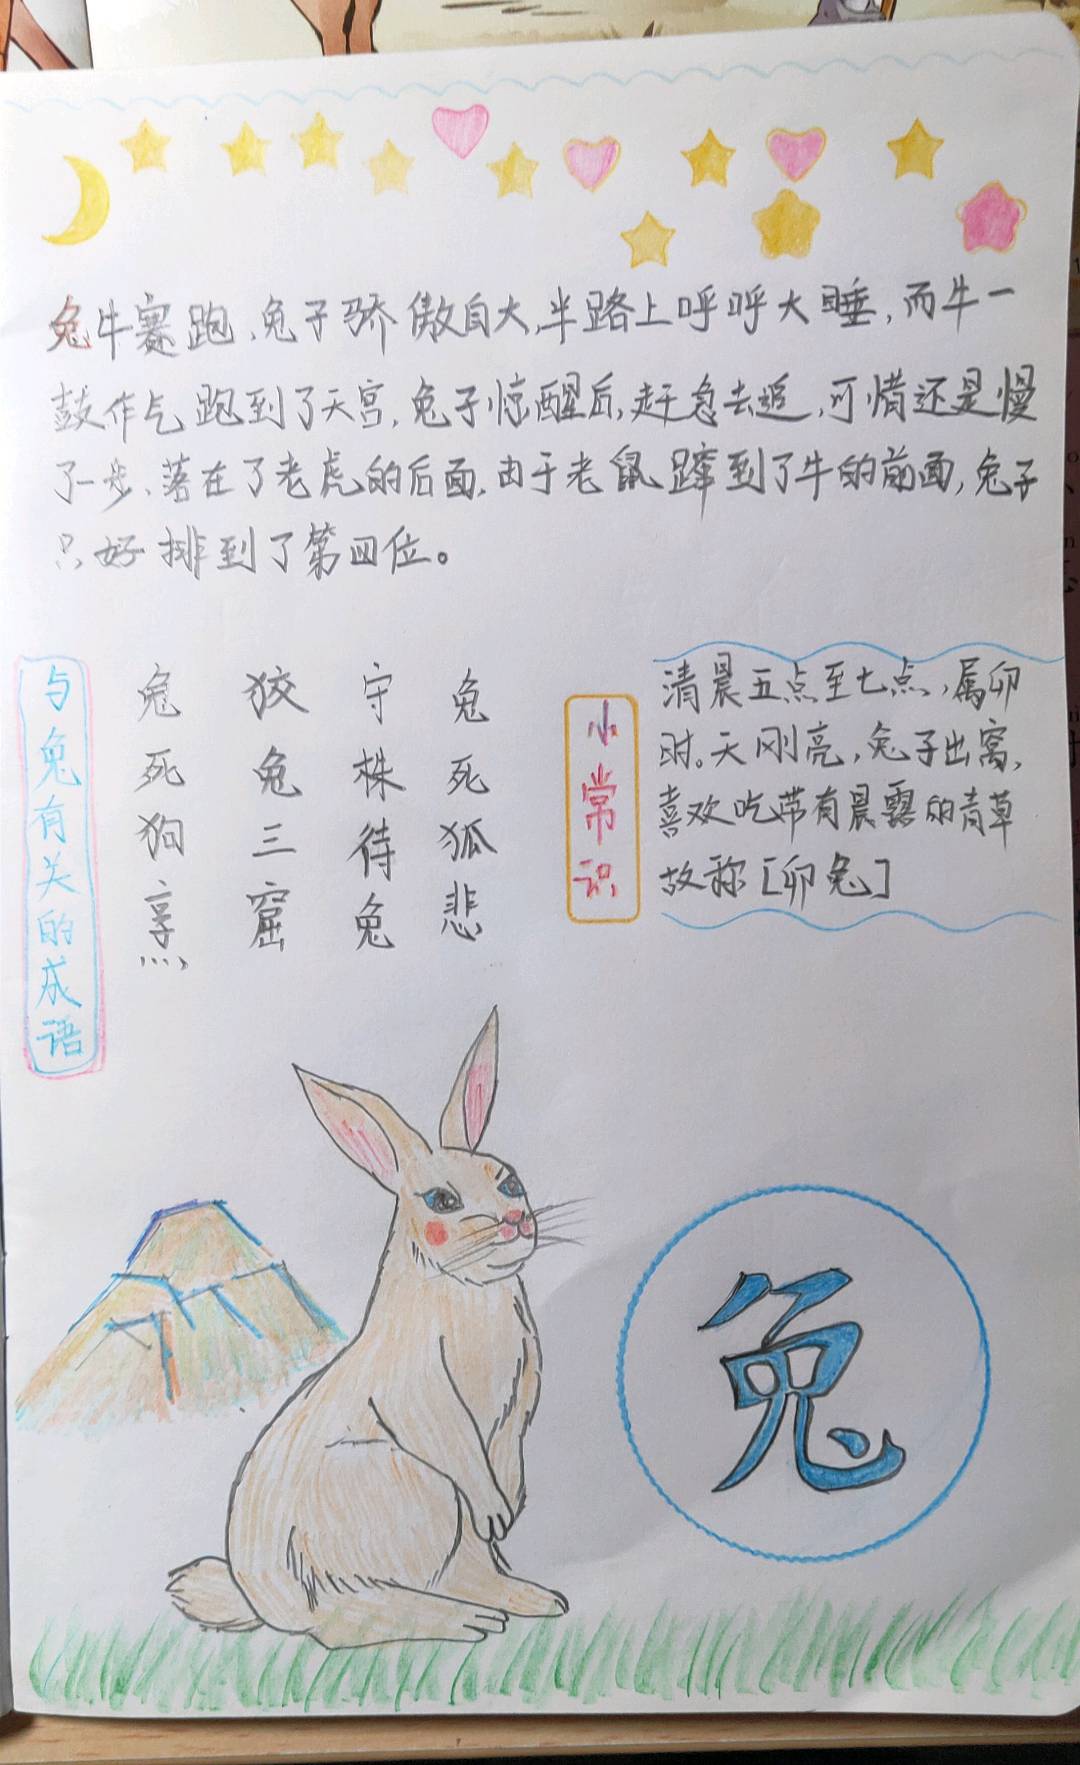 兔牛赛跑,兔子骄傲自大,半路上呼呼大睡,而牛一
鼓作气跑到了天宫,兔子惊醒后,赶急去追,可惜还是慢
了一步、落在了老虎的后面,由于老鼠蹿到了牛的前面,兔子
只好排到了第四位。
与兔有关的成语
兔死狗烹
狡兔三窟
守株待兔
兔死狐悲
小常识
清晨五点至七点,属卯
时。天刚亮,兔子出窝,
喜欢吃带有晨露的青草
故称[卯兔]
兔